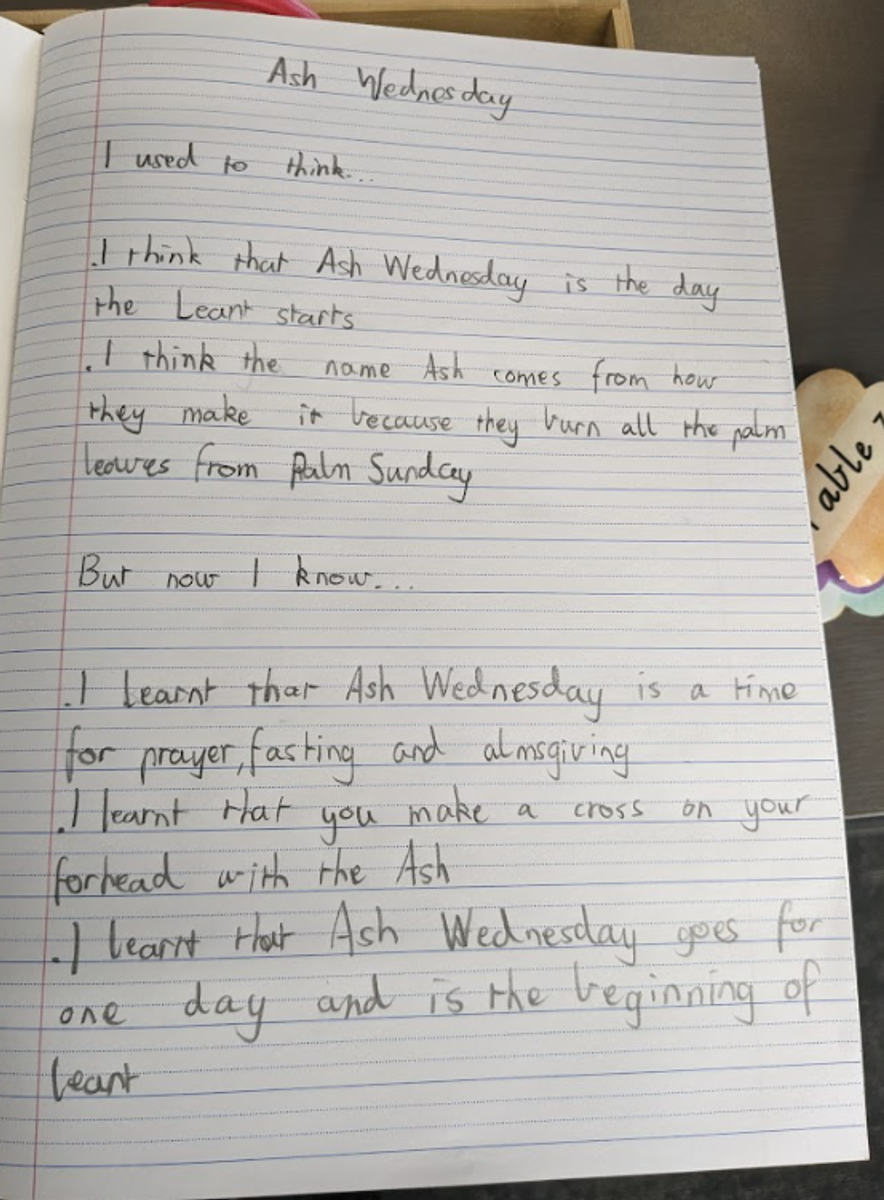 Ash Wednesday
I used to think...
.I think that Ash Wednesday is the day
the Leant starts
.I think the name Ash comes from how
they make it because they burn all the palm
leawes from Palm Sunday
But now I know....
.I learnt that Ash Wednesday is a time
for prayer, fasting and almsgiving
.I learnt that you make a cross on your
forhead with the Ash
.I learnt that Ash Wednesday goes for
one day and is the beginning of
leant
able